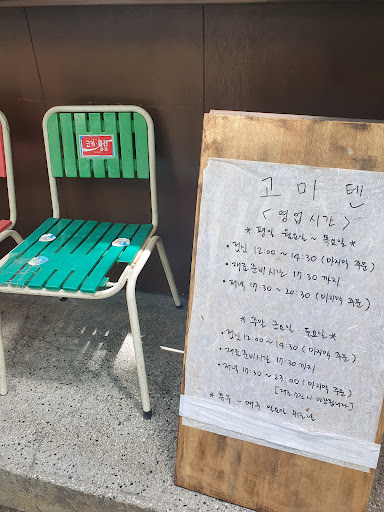 코카·콜라
고미텐
< 영업시간 >
* 평일 월요일 ~ 목요일 *
• 점심 12:00 ~ 14:30 (마지막 주문)
• 재료준비시간 17:30 까지
• 저녁 17:30 ~ 20:30 (마지막 주문)
* 주말 금요일 토요일 *
• 점심 12:00 ~ 14:30 (마지막 주문)
• 재료준비시간 17:30 까지
• 저녁 17:30 ~ 23:00 (마지막 주문)
[재료 소진시 마감됩니다]
* 휴무 - 매주 일요일